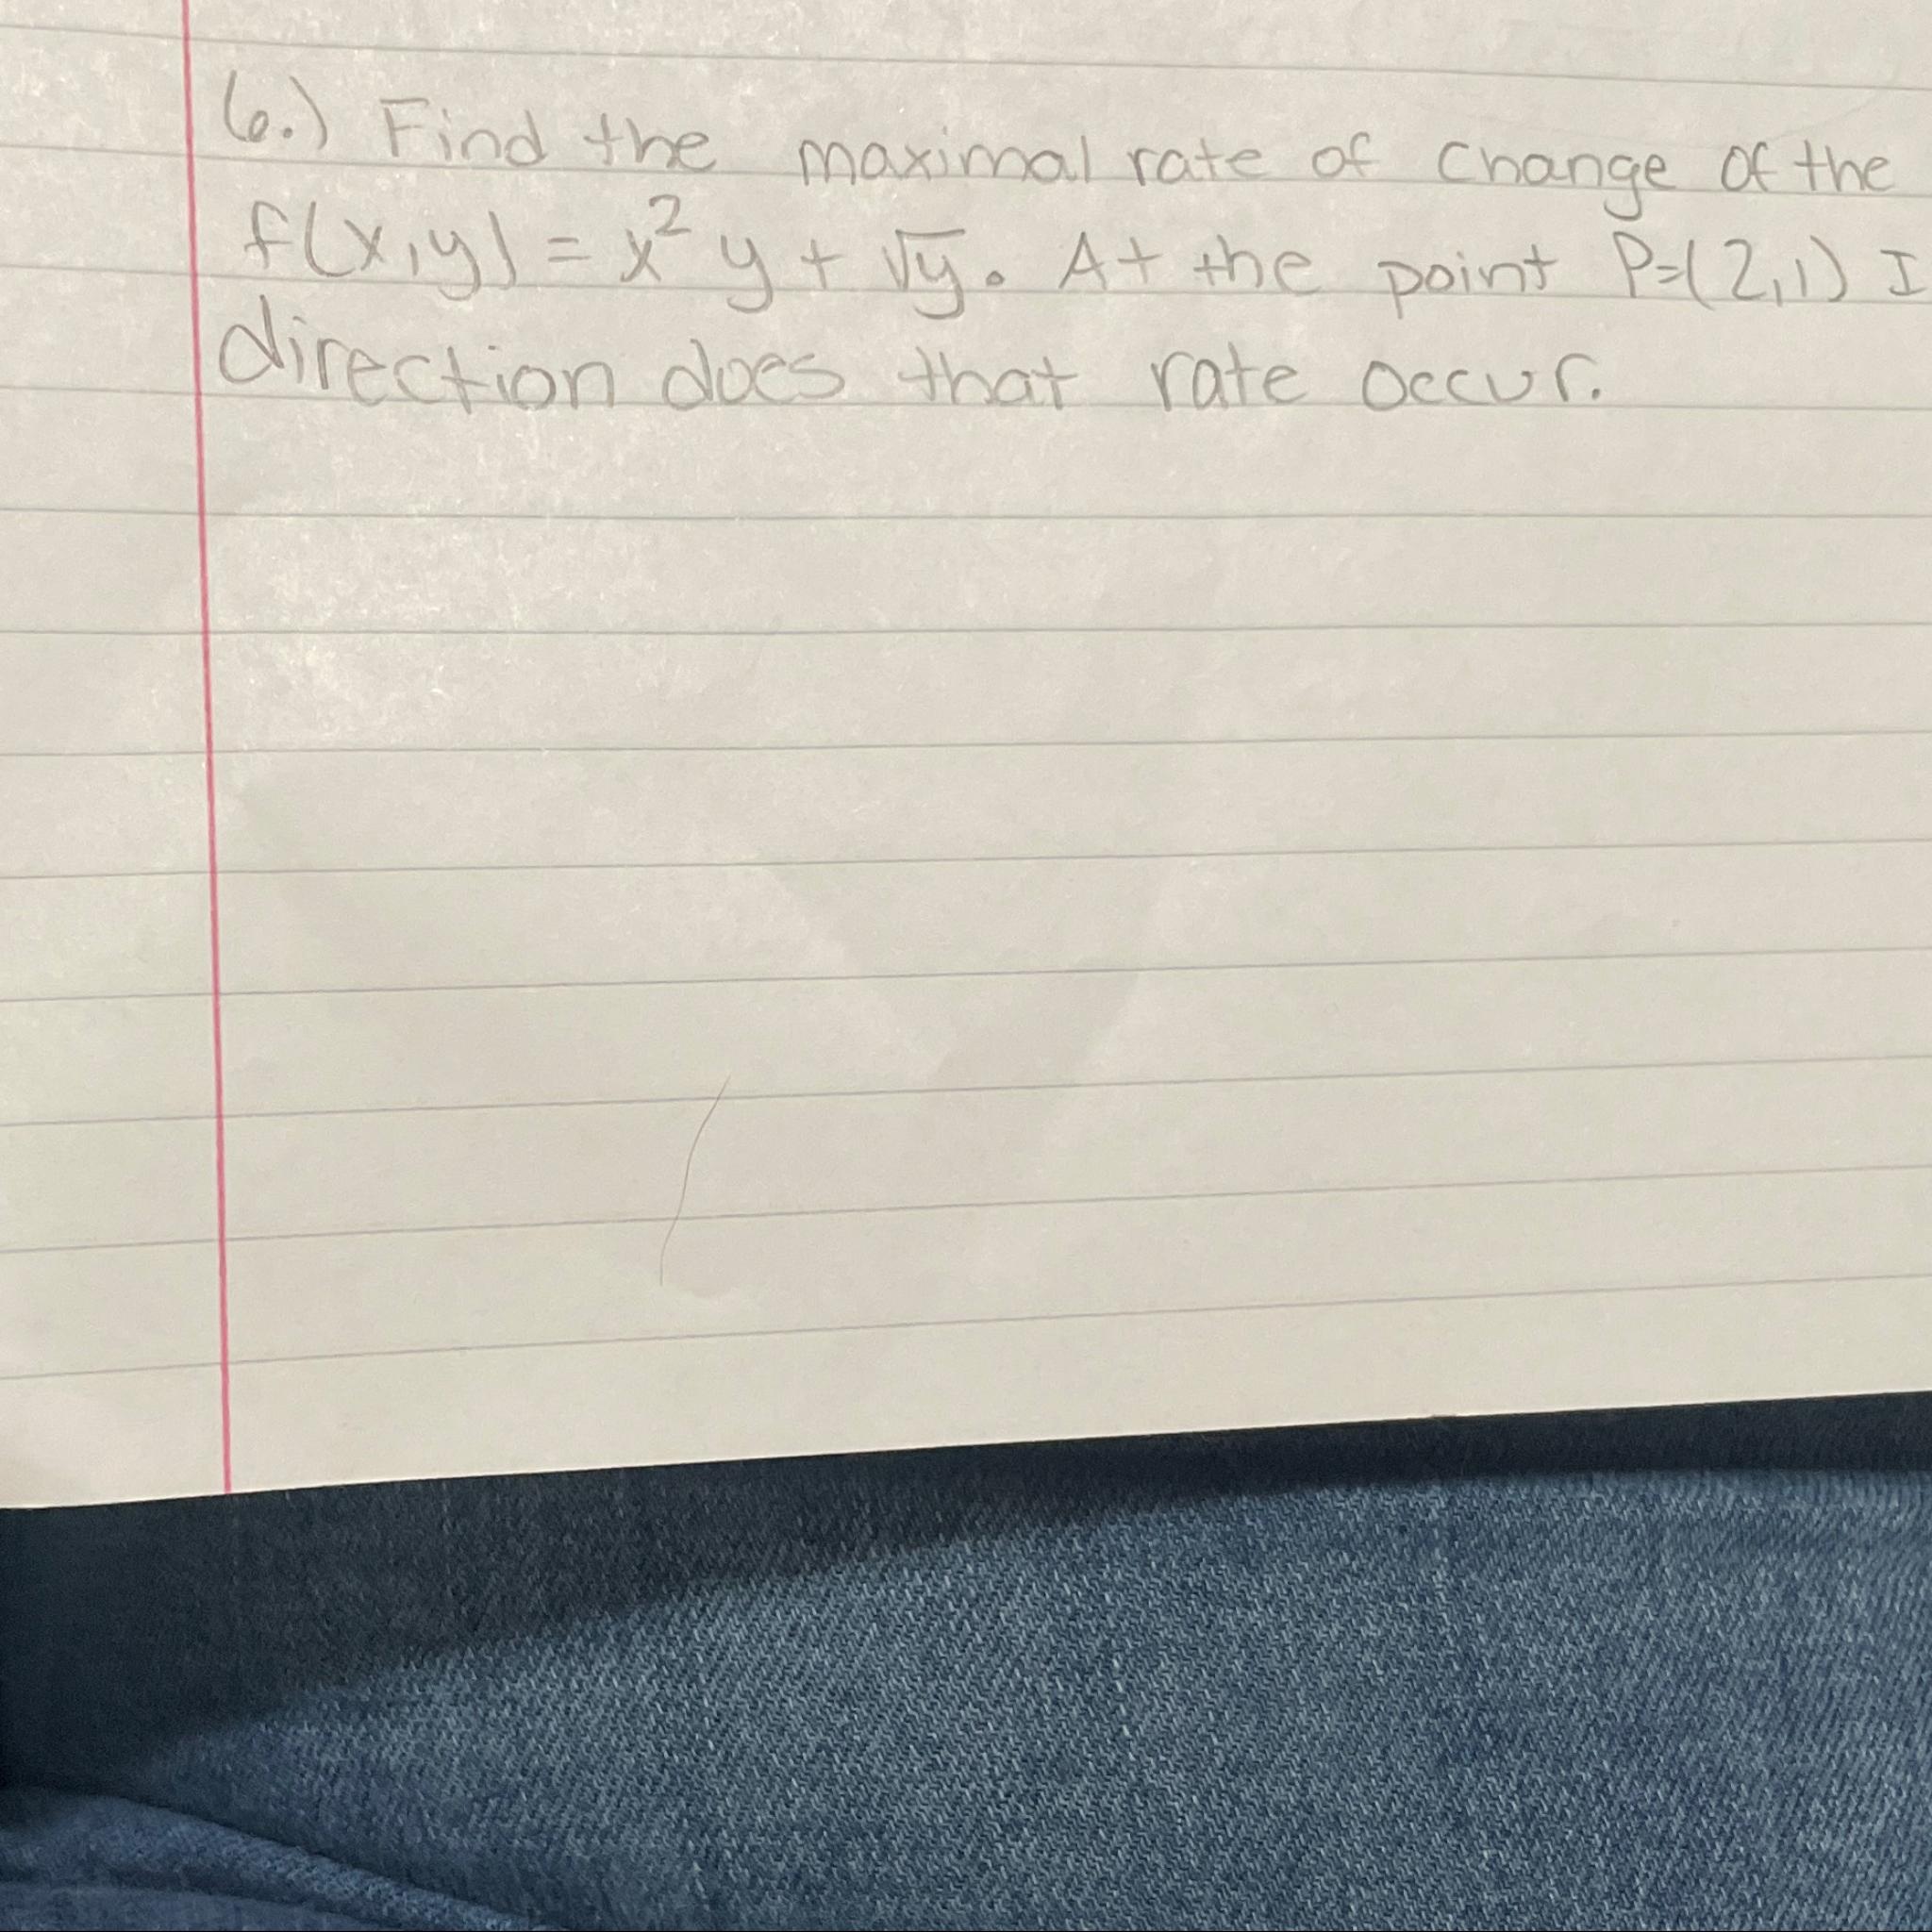 6.) Find the maximal rate of change of the
f(x,y) = x² y + √y. At the point P=(2,1) I
direction does that rate occur.